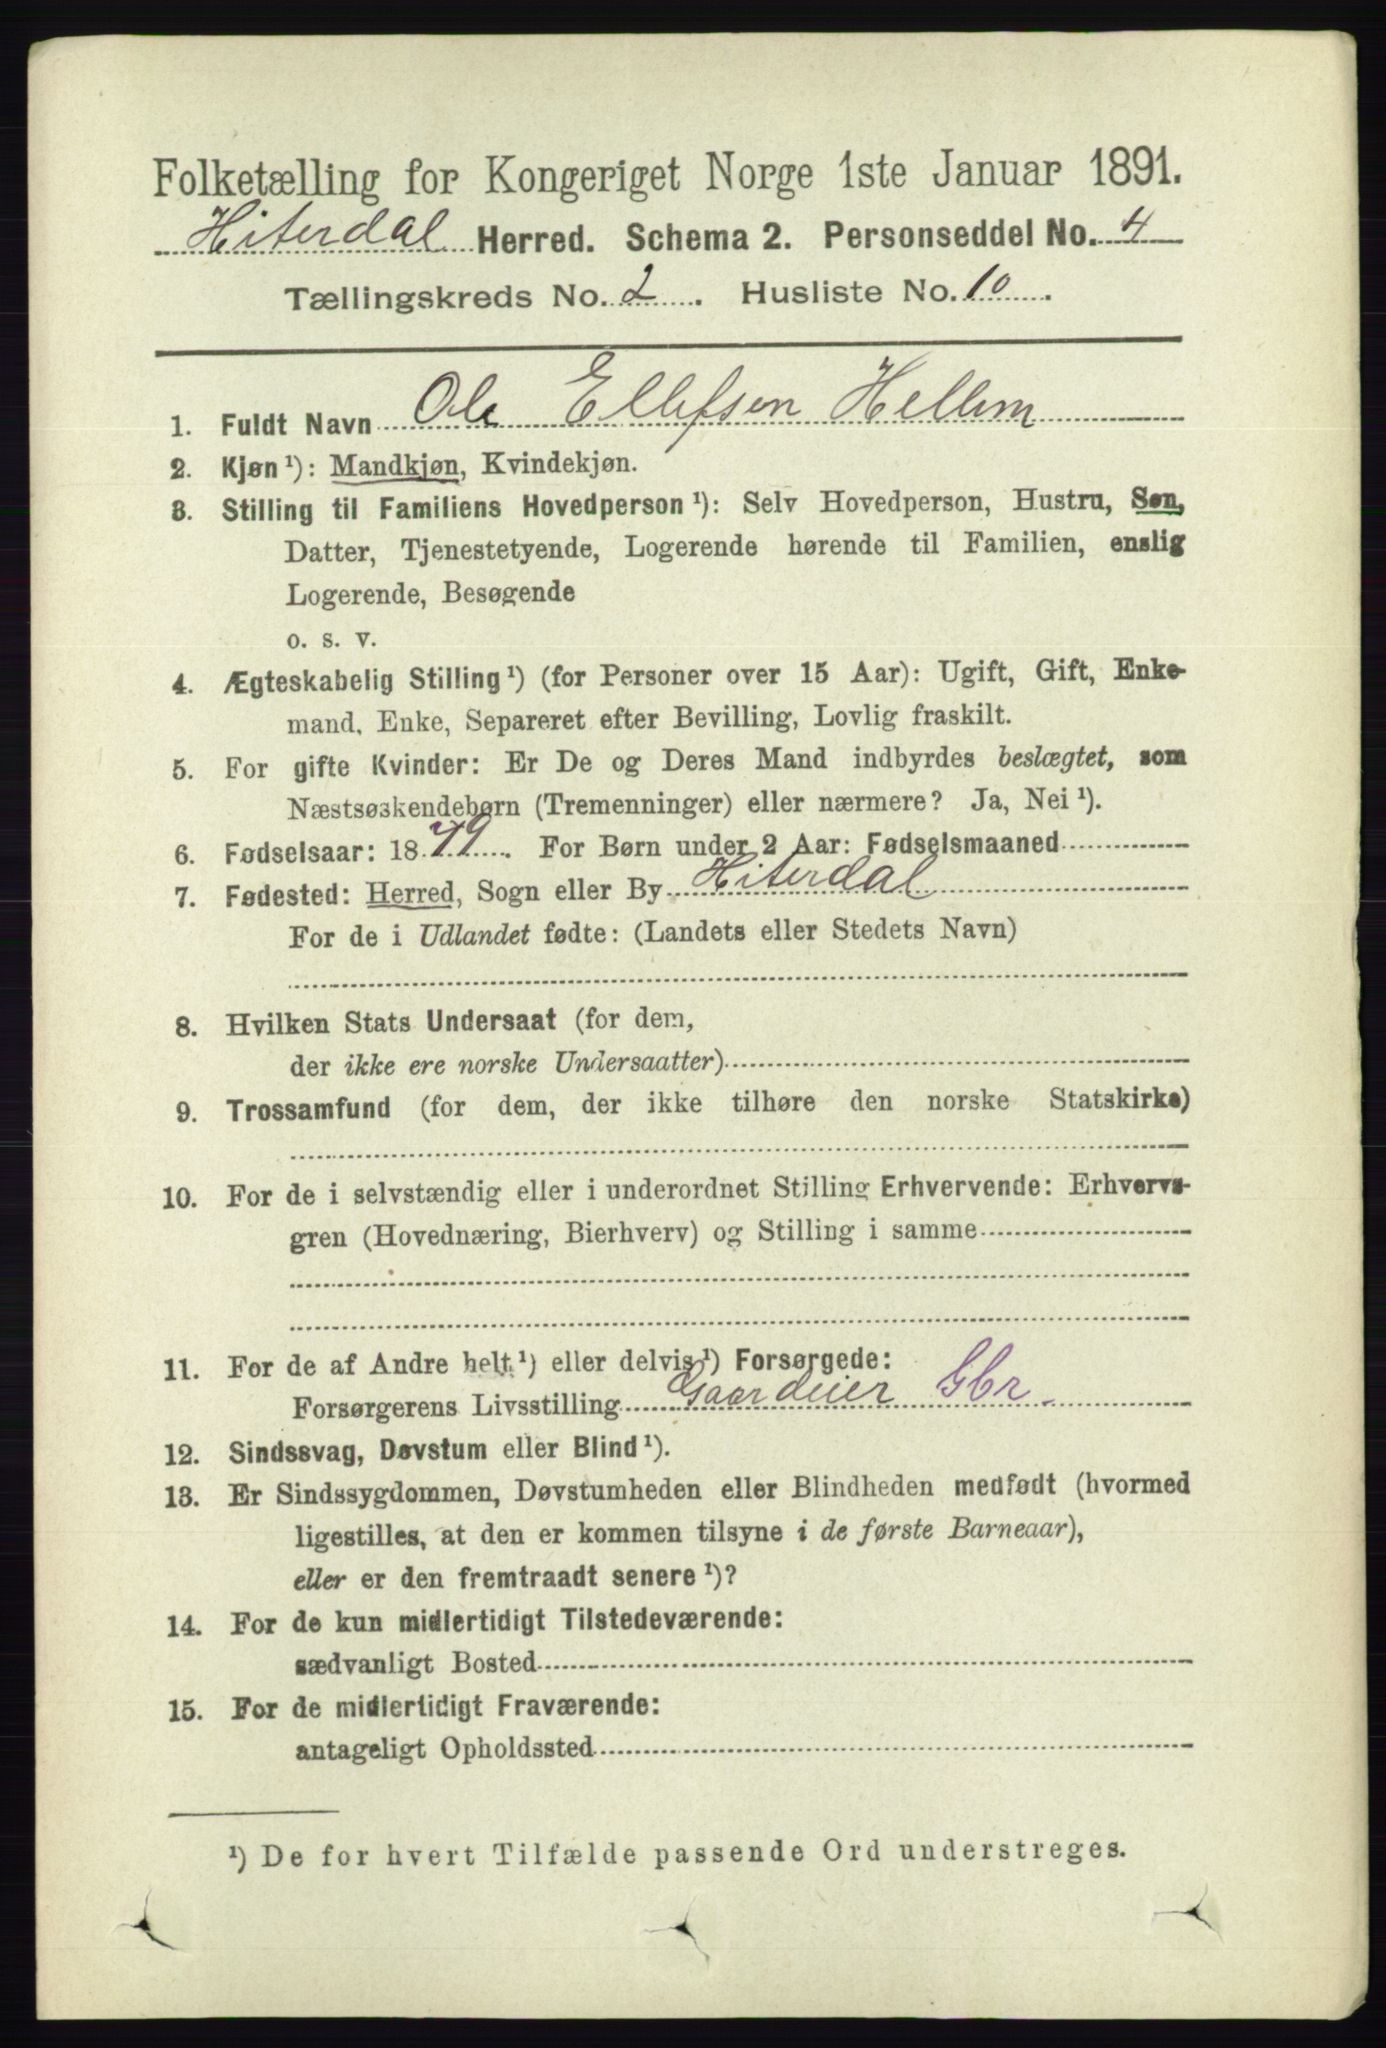 Folketælling for Kongeriget Norge 1ste Januar 1891.
Hiterdal Herred. Schema 2. Personseddel No. 4
Tællingskreds No. 2. Husliste No. 10.
1. Fuldt Navn Ole Ellefsen Hellem
2. Kjøn¹): Mandkjøn, Kvindekjøn.
3. Stilling til Familiens Hovedperson¹): Selv Hovedperson, Hustru, Søn,
Datter, Tjenestetyende, Logerende hørende til Familien, enslig
Logerende, Besøgende
o. s. v.
4. Ægteskabelig Stilling¹) (for Personer over 15 Aar): Ugift, Gift, Enke-
mand, Enke, Separeret efter Bevilling, Lovlig fraskilt.
5. For gifte Kvinder: Er De og Deres Mand indbyrdes beslægtet, som
Næstsøskendebørn (Tremenninger) eller nærmere? Ja, Nei¹).
6. Fødselsaar: 1879. For Børn under 2 Aar: Fødselsmaaned
7. Fødested: Herred, Sogn eller By Hiterdal
For de i Udlandet fødte: (Landets eller Stedets Navn)
8. Hvilken Stats Undersaat (for dem,
der ikke ere norske Undersaatter)
9. Trossamfund (for dem, der ikke tilhøre den norske Statskirke)
10. For de i selvstændig eller i underordnet Stilling Erhvervende: Erhvervs-
gren (Hovednæring, Bierhverv) og Stilling i samme
11. For de af Andre helt¹) eller delvis¹) Forsørgede:
Forsørgerens Livsstilling Gaardeier Gbr.
12. Sindssvag, Døvstum eller Blind¹).
13. Er Sindssygdommen, Døvstumheden eller Blindheden medfødt (hvormed
ligestilles, at den er kommen tilsyne i de første Barneaar),
eller er den fremtraadt senere¹)?
14. For de kun midlertidigt Tilstedeværende:
sædvanligt Bosted
15. For de midlertidigt Fraværende:
antageligt Opholdssted
¹) De for hvert Tilfælde passende Ord understreges.